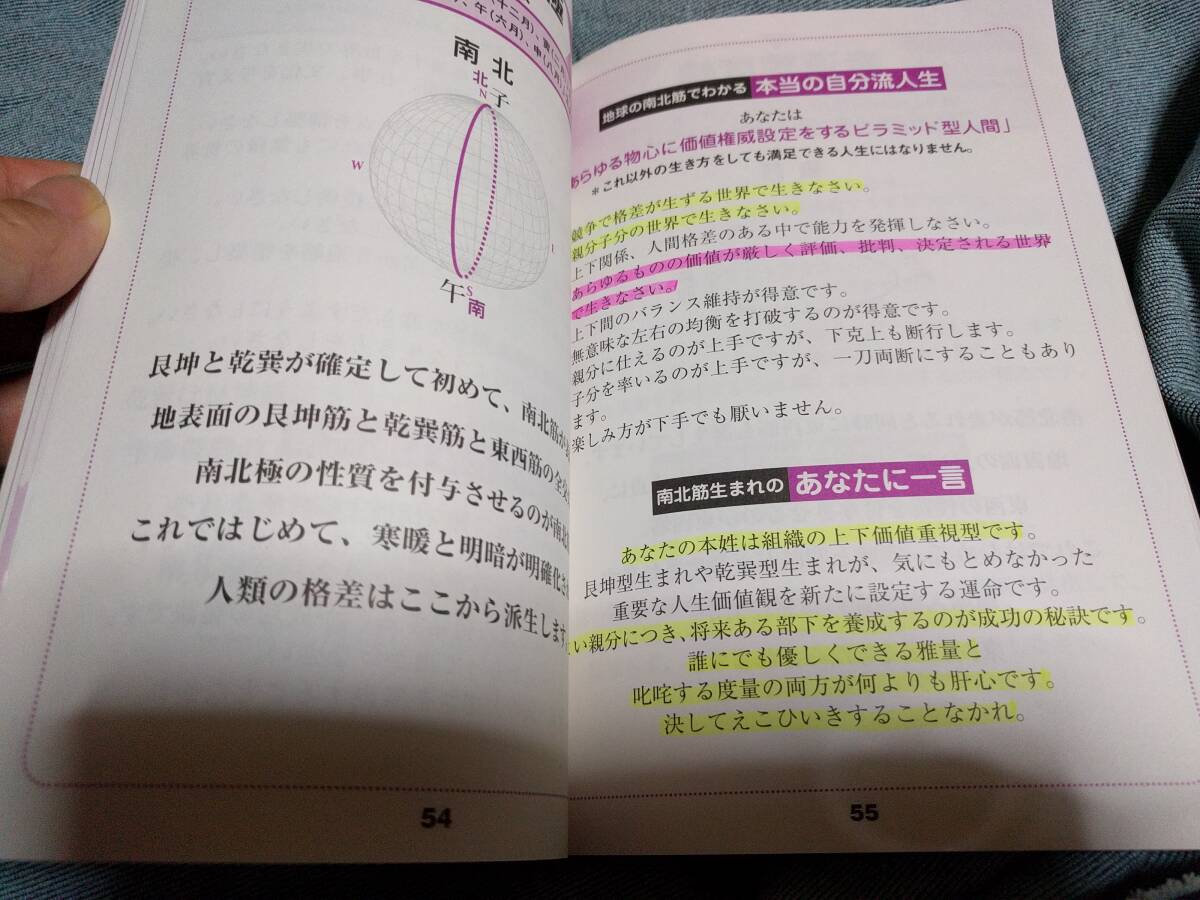 (十二月)、寅(二月)
、午(六月)、申(八月)
南北
北
N
子
W
S
午
南
艮坤と乾巽が確定して初めて、南北筋が
地表面の艮坤筋と乾巽筋と東西筋の全
南北極の性質を付与させるのが南北
これではじめて、寒暖と明暗が明確化さ
人類の格差はここから派生します
54
地球の南北筋でわかる 本当の自分流人生
あなたは
あらゆる物心に価値権威設定をするピラミッド型人間」
*これ以外の生き方をしても満足できる人生にはなりません。
競争で格差が生ずる世界で生きなさい。
親分子分の世界で生きなさい。
上下関係、人間格差のある中で能力を発揮しなさい。
あらゆるものの価値が厳しく評価、批判、決定される世界
で生きなさい。
上下間のバランス維持が得意です。
無意味な左右の均衡を打破するのが得意です。
親分に仕えるのが上手ですが、下克上も断行します。
子分を率いるのが上手ですが、一刀両断にすることもあり
ます。
楽しみ方が下手でも厭いません。
南北筋生まれの あなたに一言
あなたの本姓は組織の上下価値重視型です。
艮坤型生まれや乾巽型生まれが、気にもとめなかった
重要な人生価値観を新たに設定する運命です。
い親分につき、将来ある部下を養成するのが成功の秘訣です。
誰にでも優しくできる雅量と
叱咤する度量の両方が何よりも肝心です。
決してえこひいきすることなかれ。
55